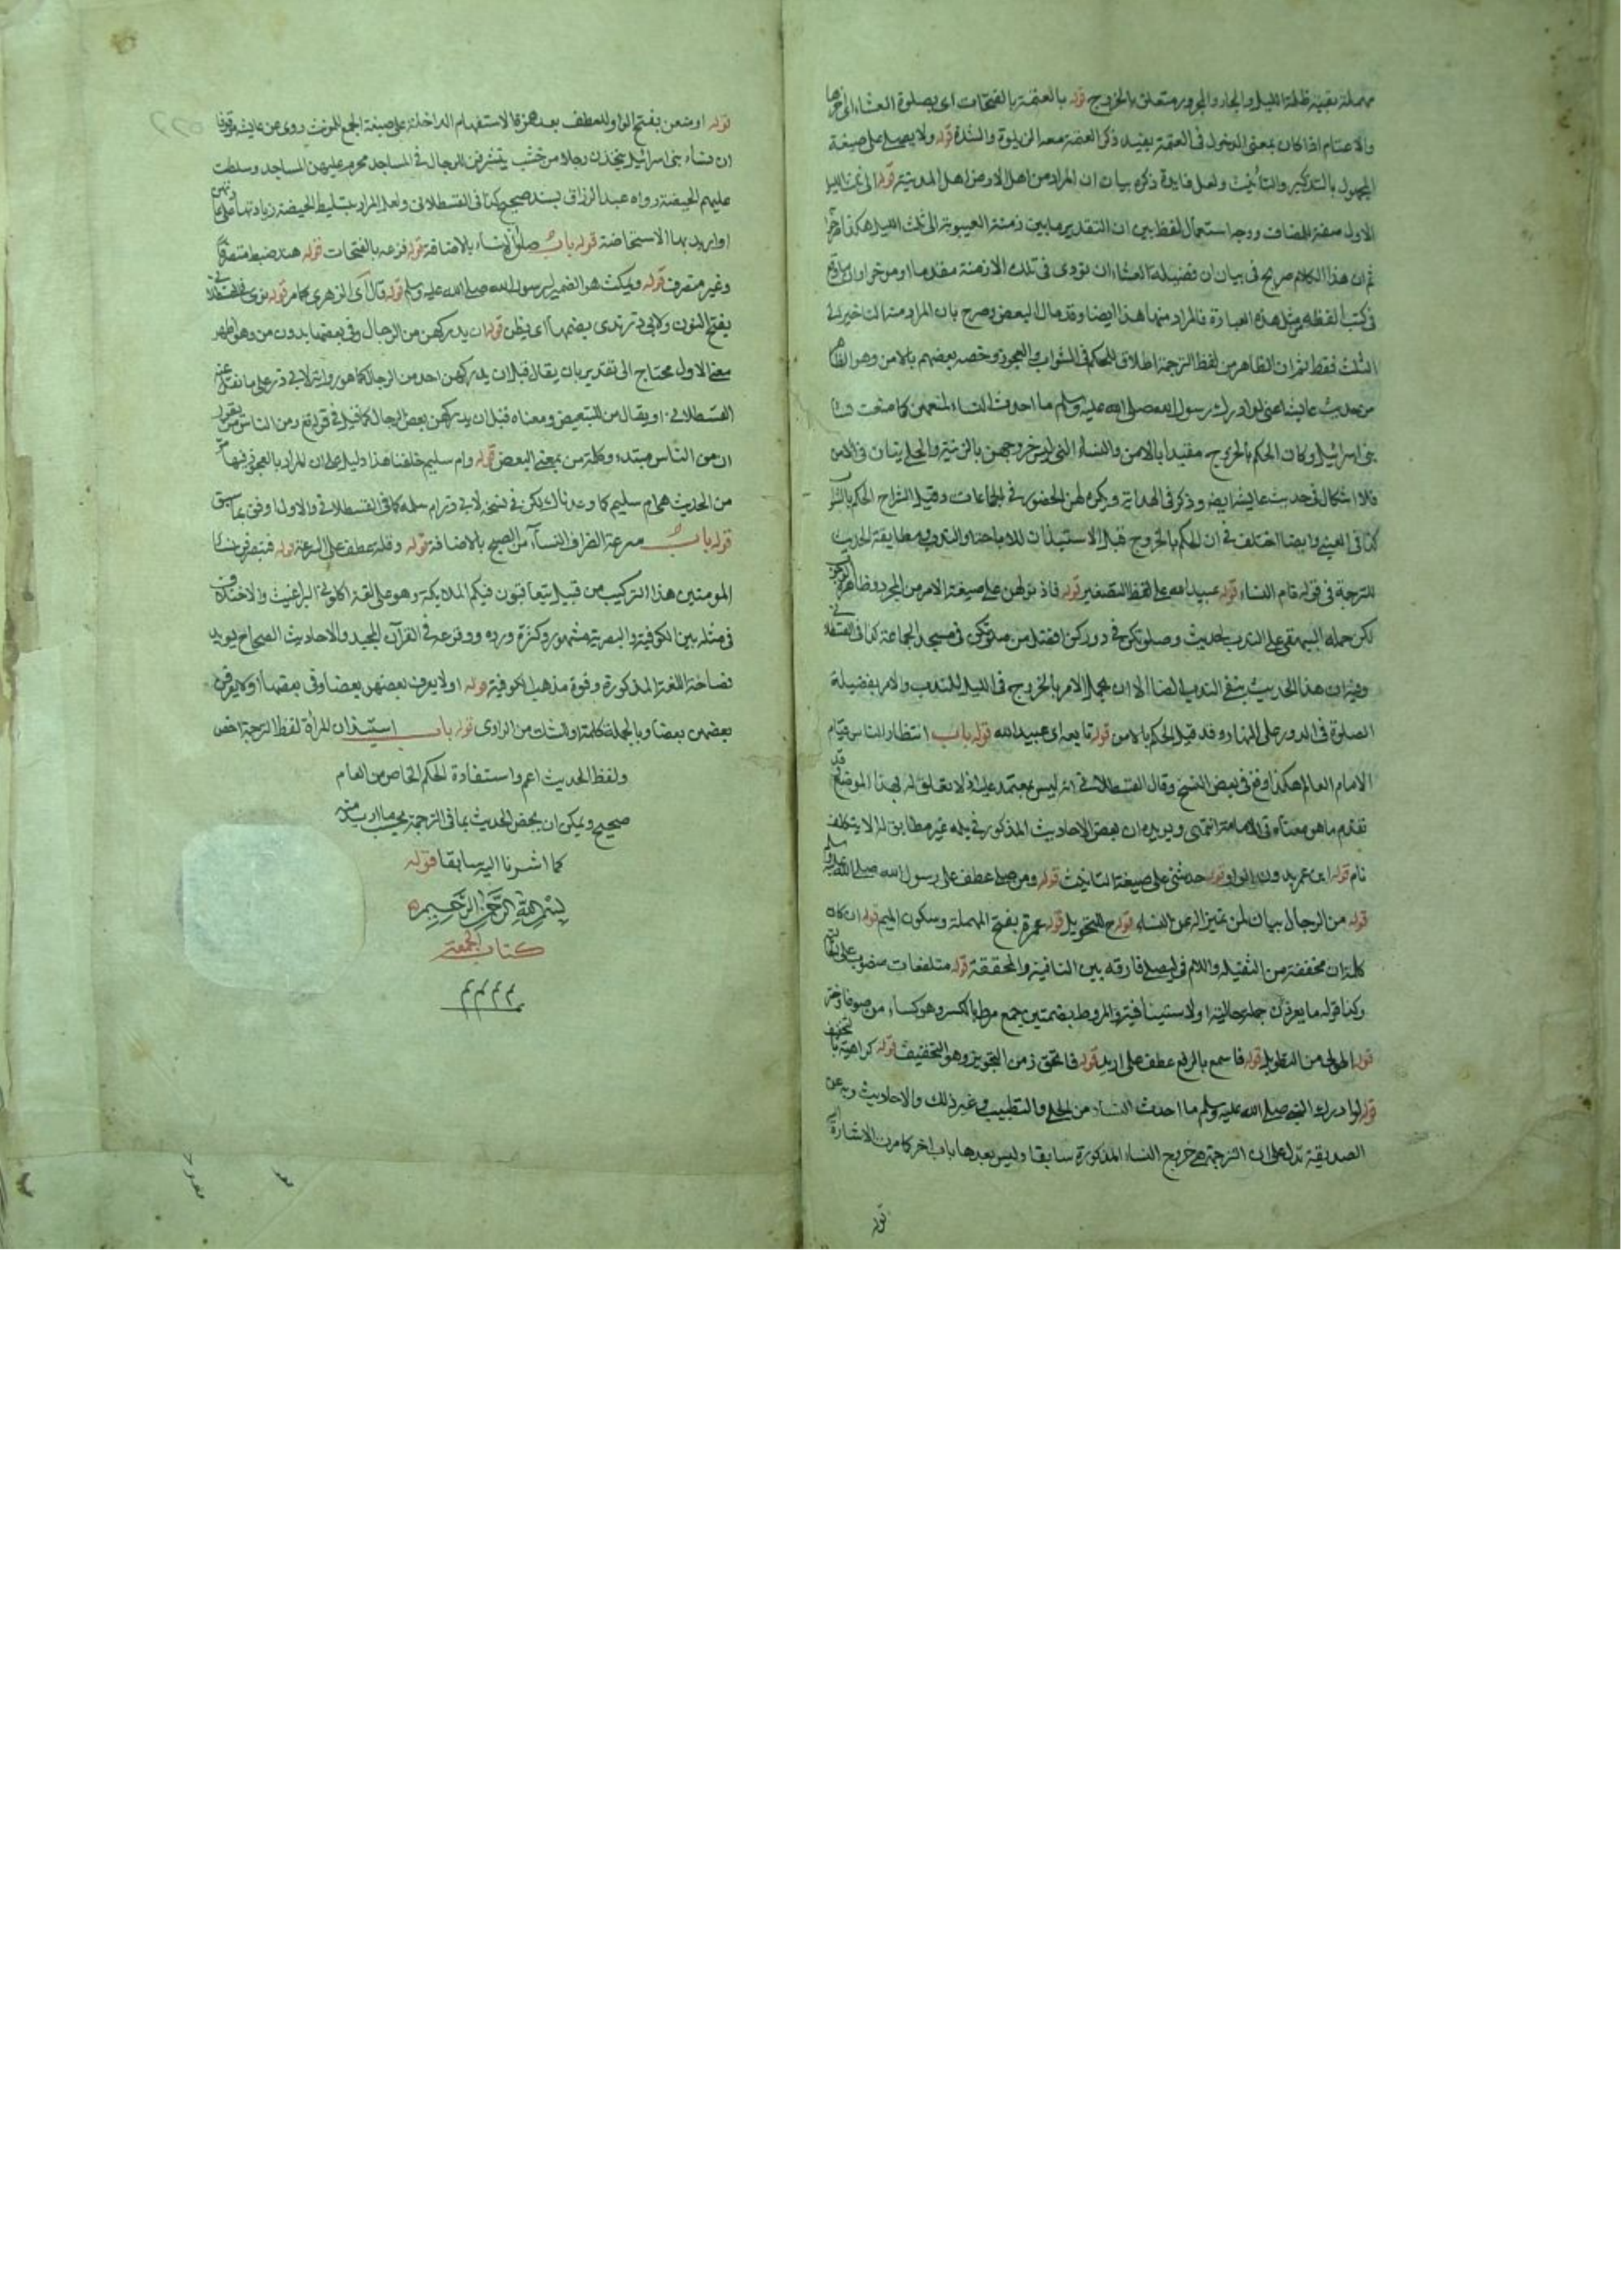 مهملة بقية ظلمة الليل والجار والمجرور متعلق بالخروج قوله بالعتمة بالفتحات اى بصلوة العشاء الى اخرها
والاعتام اذا كان بمعنى الدخول فى العتمة يفيد ذكر العتمة معه قوله ولا يصلى على صيغة
المجهول بالتذكير والتأنيث ولعل فايدة ذكره بيان ان المراد من اهل الارض اهل المدينة قوله الى ثلث الليل
الاول صفة المضاف ووجه استعمال لفظ بين ان التقدير ما بين ازمنة الغيبوبة الى ثلث الليل هكذا
ثم ان هذا الكلام صريح فى بيان ان فضيلة العشاء ان تؤدى فى تلك الازمنة مقدما او موخرا
فى كتب الفقه مثل هذه العبارة فالمراد منها هذا ايضا وقد مال البعض وصرح بان المراد منه التاخير الى
الثلث فقط ثم ان الظاهر من لفظ الترجمة اطلاق الحكم فى الشواب والعجوز وخصه بعضهم بالامن وهو الظاهر
من حديث عايشة اعنى لو ادرك رسول الله صلى الله عليه وسلم ما احدث النساء لمنعهن كما منعت نساء
بنى اسرائيل وكان الحكم بالخروج مقيدا بالامن والنساء التى ليس خروجهن بالزينة والحلى
فلا اشكال فى حديث عايشة ايضا وذكر فى الهداية ويكره لهن الحضور فى الجماعات وقيل الشراح
كذا فى العينى وايضا اختلف فى ان الحكم بالخروج قبل الاستيذان للاباحة او الندب ومطابقة الحديث
للترجمة فى قوله نام النساء قوله عبيد الله على لفظ التصغير قوله فاذنوا لهن على صيغة الامر من المجرد وظاهره
لكن حمله البيهقى على الندب لحديث وصلوتكن فى دوركن افضل من صلوتكن فى مسجد الجماعة كذا فى القسطلانى
وفيه ان هذا الحديث ينفى الندب ايضا الا ان يحمل الامر بالخروج فى الليل للندب والامر بفضيلة
الصلوة فى الدور على النهار وقد قيل الحكم بالامن قوله تابعه اى عبيد الله قوله باب انتظار الناس قيام
الامام العالم هكذا وقع فى بعض النسخ وقال القسطلانى انه ليس بمعتمد عليه اذ لا تعلق له بهذا الموضع
تقدم ما هو معناه فى الامامة انتهى ويويده ان بعض الاحاديث المذكور فى ذيله غير مطابق له الا بتكلف
نام قوله ابن عمر بدون الواو قوله حدثتنى على صيغة التانيث قوله ومن صلى عطف على رسول الله صلى الله عليه وسلم
قوله من الرجال بيان لمن تميزا له عن النساء قوله ح للتحويل قوله عمرة بفتح المهملة وسكون الميم قوله ان كان
كلمة ان مخففة من الثقيلة واللام فى ليصلى فارقة بين النافية والمخففة قوله متلفعات منصوب على الحالية
وكذا قوله ما يعرفن جملة حالية او استينافية والمروط بضمتين جمع مرط بالكسر وهو كساء من صوف او خز
قوله اطول من التطويل قوله فاسمع بالرفع عطف على اريد قوله فاتجوز من التجويز وهو التخفيف قوله كراهية بالتخفيف
قوله لو ادرك النبى صلى الله عليه وسلم ما احدث النساء من الحلى والتطييب وغير ذلك والاحاديث
الصديقة تدل على ان الترجمة هى خروج النساء المذكورة سابقا وليس بعدها باب اخر كما مرت الاشارة اليه
قوله
قوله او منعن بفتح الواو للعطف بعد همزة الاستفهام الداخلة على صيغة الجمع المونث روى عن عايشة موقوفا
ان نساء بنى اسرائيل يتخذن رجلا من خشب يتشرفن للرجال فى المساجد فحرم عليهن المساجد وسلطت
عليهم الحيضة رواه عبد الرزاق بسند صحيح كذا فى القسطلانى ولعل المراد بتسليط الحيضة زيادتها
او اريد بها الاستحاضة قوله باب صلوة النساء بالاضافة قوله قزعة بالفتحات قوله هند ضبط منصرفا
وغير منصرف قوله ويمكث هو الضمير لرسول الله صلى الله عليه وسلم قوله قال اى الزهرى كما مر قوله نرى
بفتح النون ولابى ذر نرى بضمها اى يظن قوله ان يدركهن من الرجال وفى بعضها بدون من وهو اظهر
معنى الاول محتاج الى تقدير بان يقال قبل ان يدركهن احد من الرجال كما هو رواية لابى ذر على ما نقل عنه
القسطلانى او يقال من للتبعيض ومعناه قبل ان يدركهن بعض الرجال كما قيل فى قوله تعالى ومن الناس من يقول
ان من الناس مبتدء وكلمة من بمعنى البعض قوله وام سليم خلفنا هذا دليل على ان المراد بالعجوز فيها
من الحديث هى ام سليم كما وعدناك لكن فى نسخة لابى ذر ام سلمة كما فى القسطلانى والاول اوفق بما سبق
قوله باب سرعة انصراف النساء من الصبح بالاضافة قوله وقلة عطف على السرعة قوله فينصرفن نساء
المومنين هذا التركيب من قبيل يتعاقبون فيكم الملايكة وهو على لغة اكلونى البراغيث والاختلاف
فى مثله بين الكوفية والبصرية مشهور وكثرة وروده ووقوعه فى القرآن المجيد والاحاديث الصحاح يويد
فصاحة اللغة المذكورة وقوة مذهب الكوفية قوله او لا يعرف بعضهن بعضا وفى بعضها او لا يعرفن
بعضهن بعضا وبالجملة كلمة او للشك من الراوى قوله باب استيذان المراة لفظ الترجمة اخص
ولفظ الحديث اعم واستفادة الحكم الخاص من العام
صحيح ويمكن ان يخص الحديث بما فى الترجمة بحسب ما اريد منه
كما اشرنا اليه سابقا قوله
بسم الله الرحمن الرحيم
كتاب الجمعة